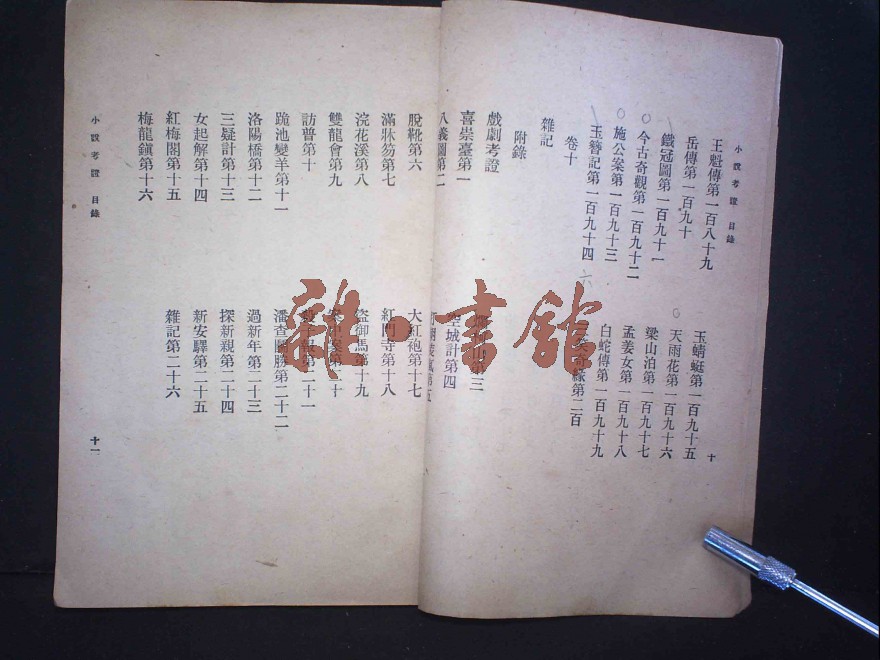 小說考證　目錄
王魁傳第一百八十九
岳傳第一百九十
鐵冠圖第一百九十一
今古奇觀第一百九十二
施公案第一百九十三
玉簪記第一百九十四
玉蜻蜓第一百九十五
天雨花第一百九十六
梁山泊第一百九十七
孟姜女第一百九十八
白蛇傳第一百九十九
緣第二百
卷十
雜記
附錄
戲劇考證
喜崇臺第一
八義圖第二
第三
空城計第四
十
脫靴第六
滿牀笏第七
浣花溪第八
雙龍會第九
訪普第十
跪池變羊第十一
洛陽橋第十二
三疑計第十三
女起解第十四
紅梅閣第十五
梅龍鎮第十六
大紅袍第十七
紅門寺第十八
盜御馬第十九
第二十
第二十一
潘查鬬勝第二十二
過新年第二十三
探新親第二十四
新安驛第二十五
雜記第二十六
小說考證　目錄
十一
雜·書館